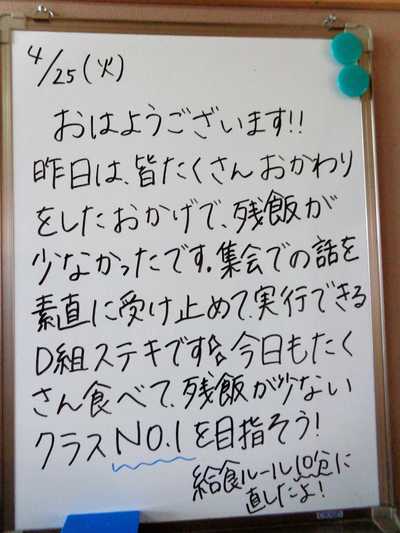 4/25(火)
おはようございます!!
昨日は、皆たくさんおかわり
をしたおかげで、残飯が
少なかったです。集会での話を
素直に受け止めて、実行できる
D組ステキです。今日もたく
さん食べて、残飯が少ない
クラスNO.1を目指そう!
給食ルール10分に
直したよ!